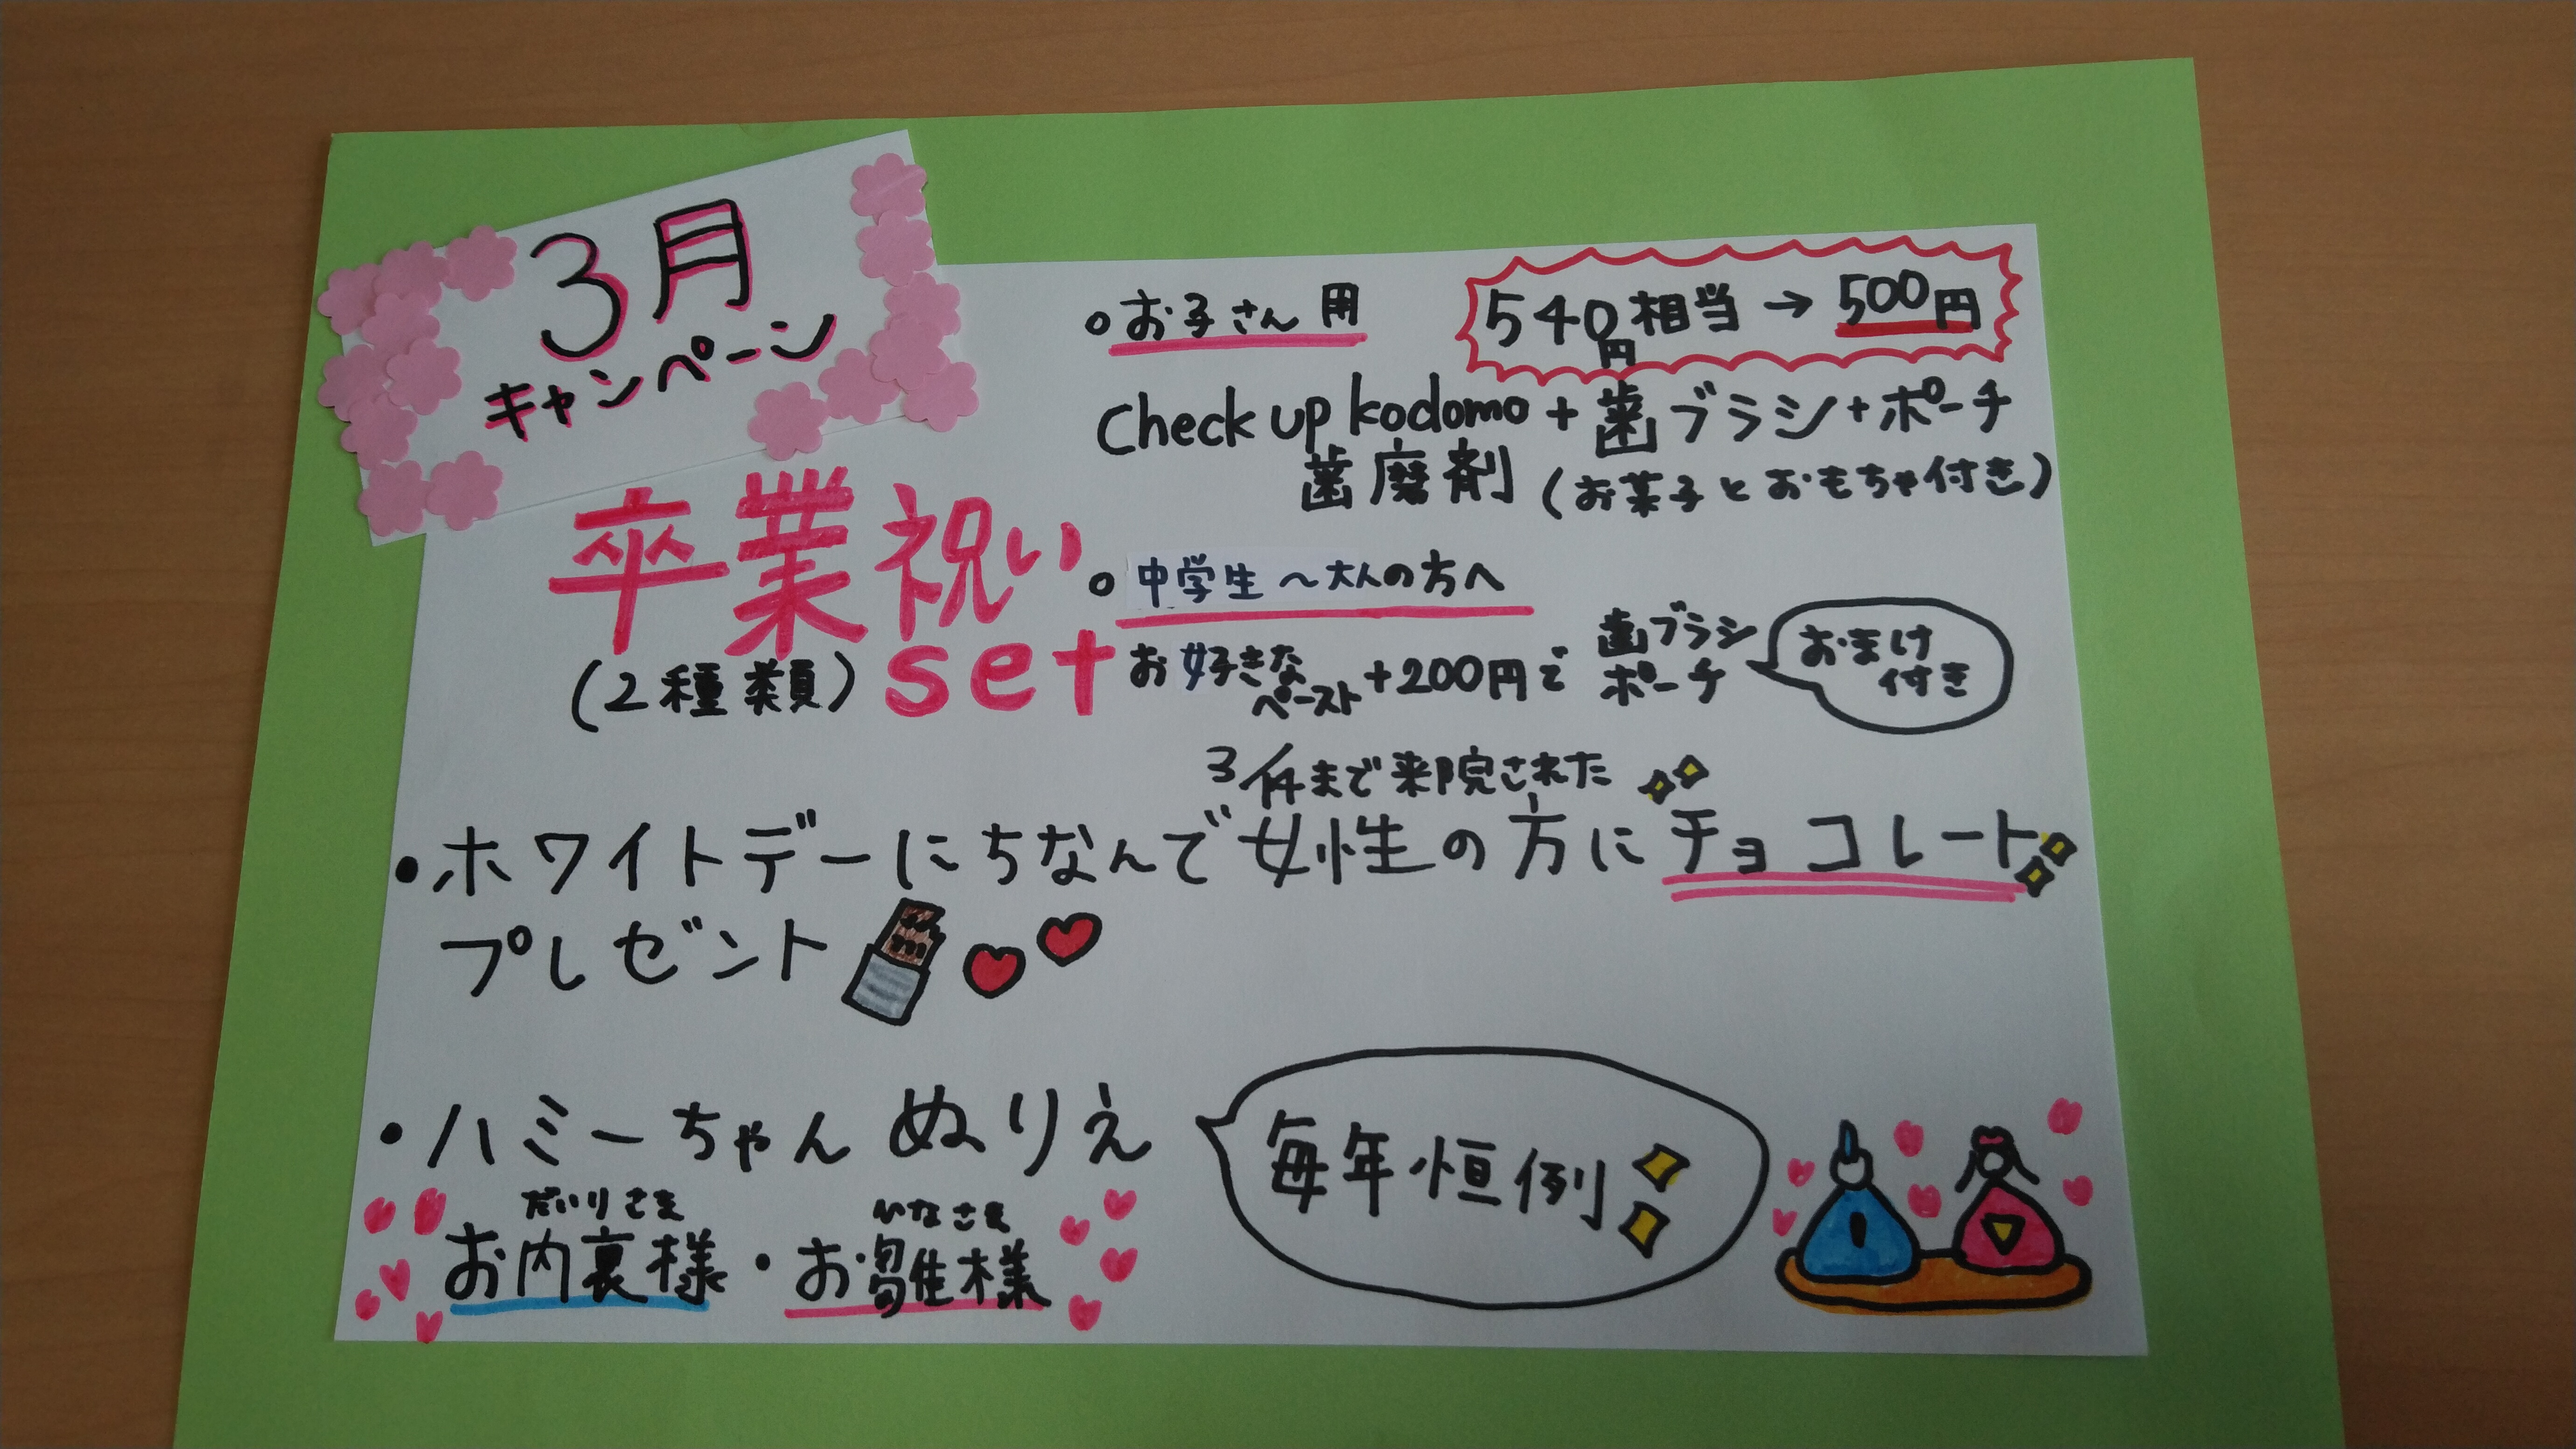 3月
キャンペーン
卒業祝い
set
(2種類)
○お子さん用
540円相当→500円
Check up kodomo+歯ブラシ+ポーチ
歯磨剤(お菓子とおもちゃ付き)
○中学生〜大人の方へ
お好きなペースト+200円で
歯ブラシ
ポーチ
おまけ
付き
まで来院された
・ホワイトデーにちなんで女性の方にチョコレート
プレゼント
・ハミーちゃんぬりえ
だいりさま ひなさま
お内裏様・お雛様
毎年恒例